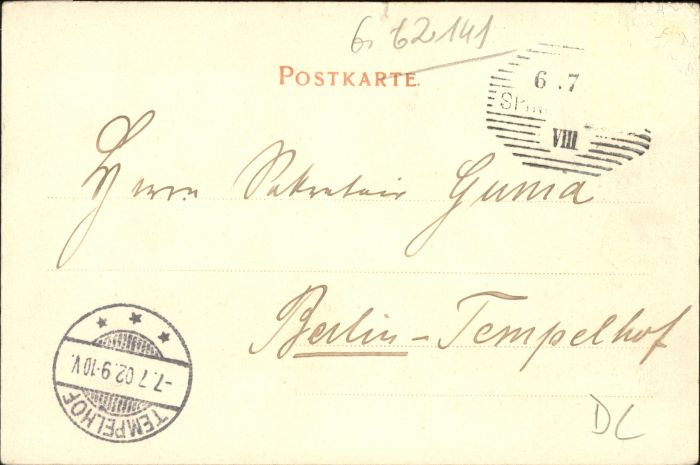 6. 62141
POSTKARTE
6.7
VIII
Herrn Sekretair Guma
Berlin-Tempelhof
-7.7.02.9-10V.
TEMPELHOF
DL